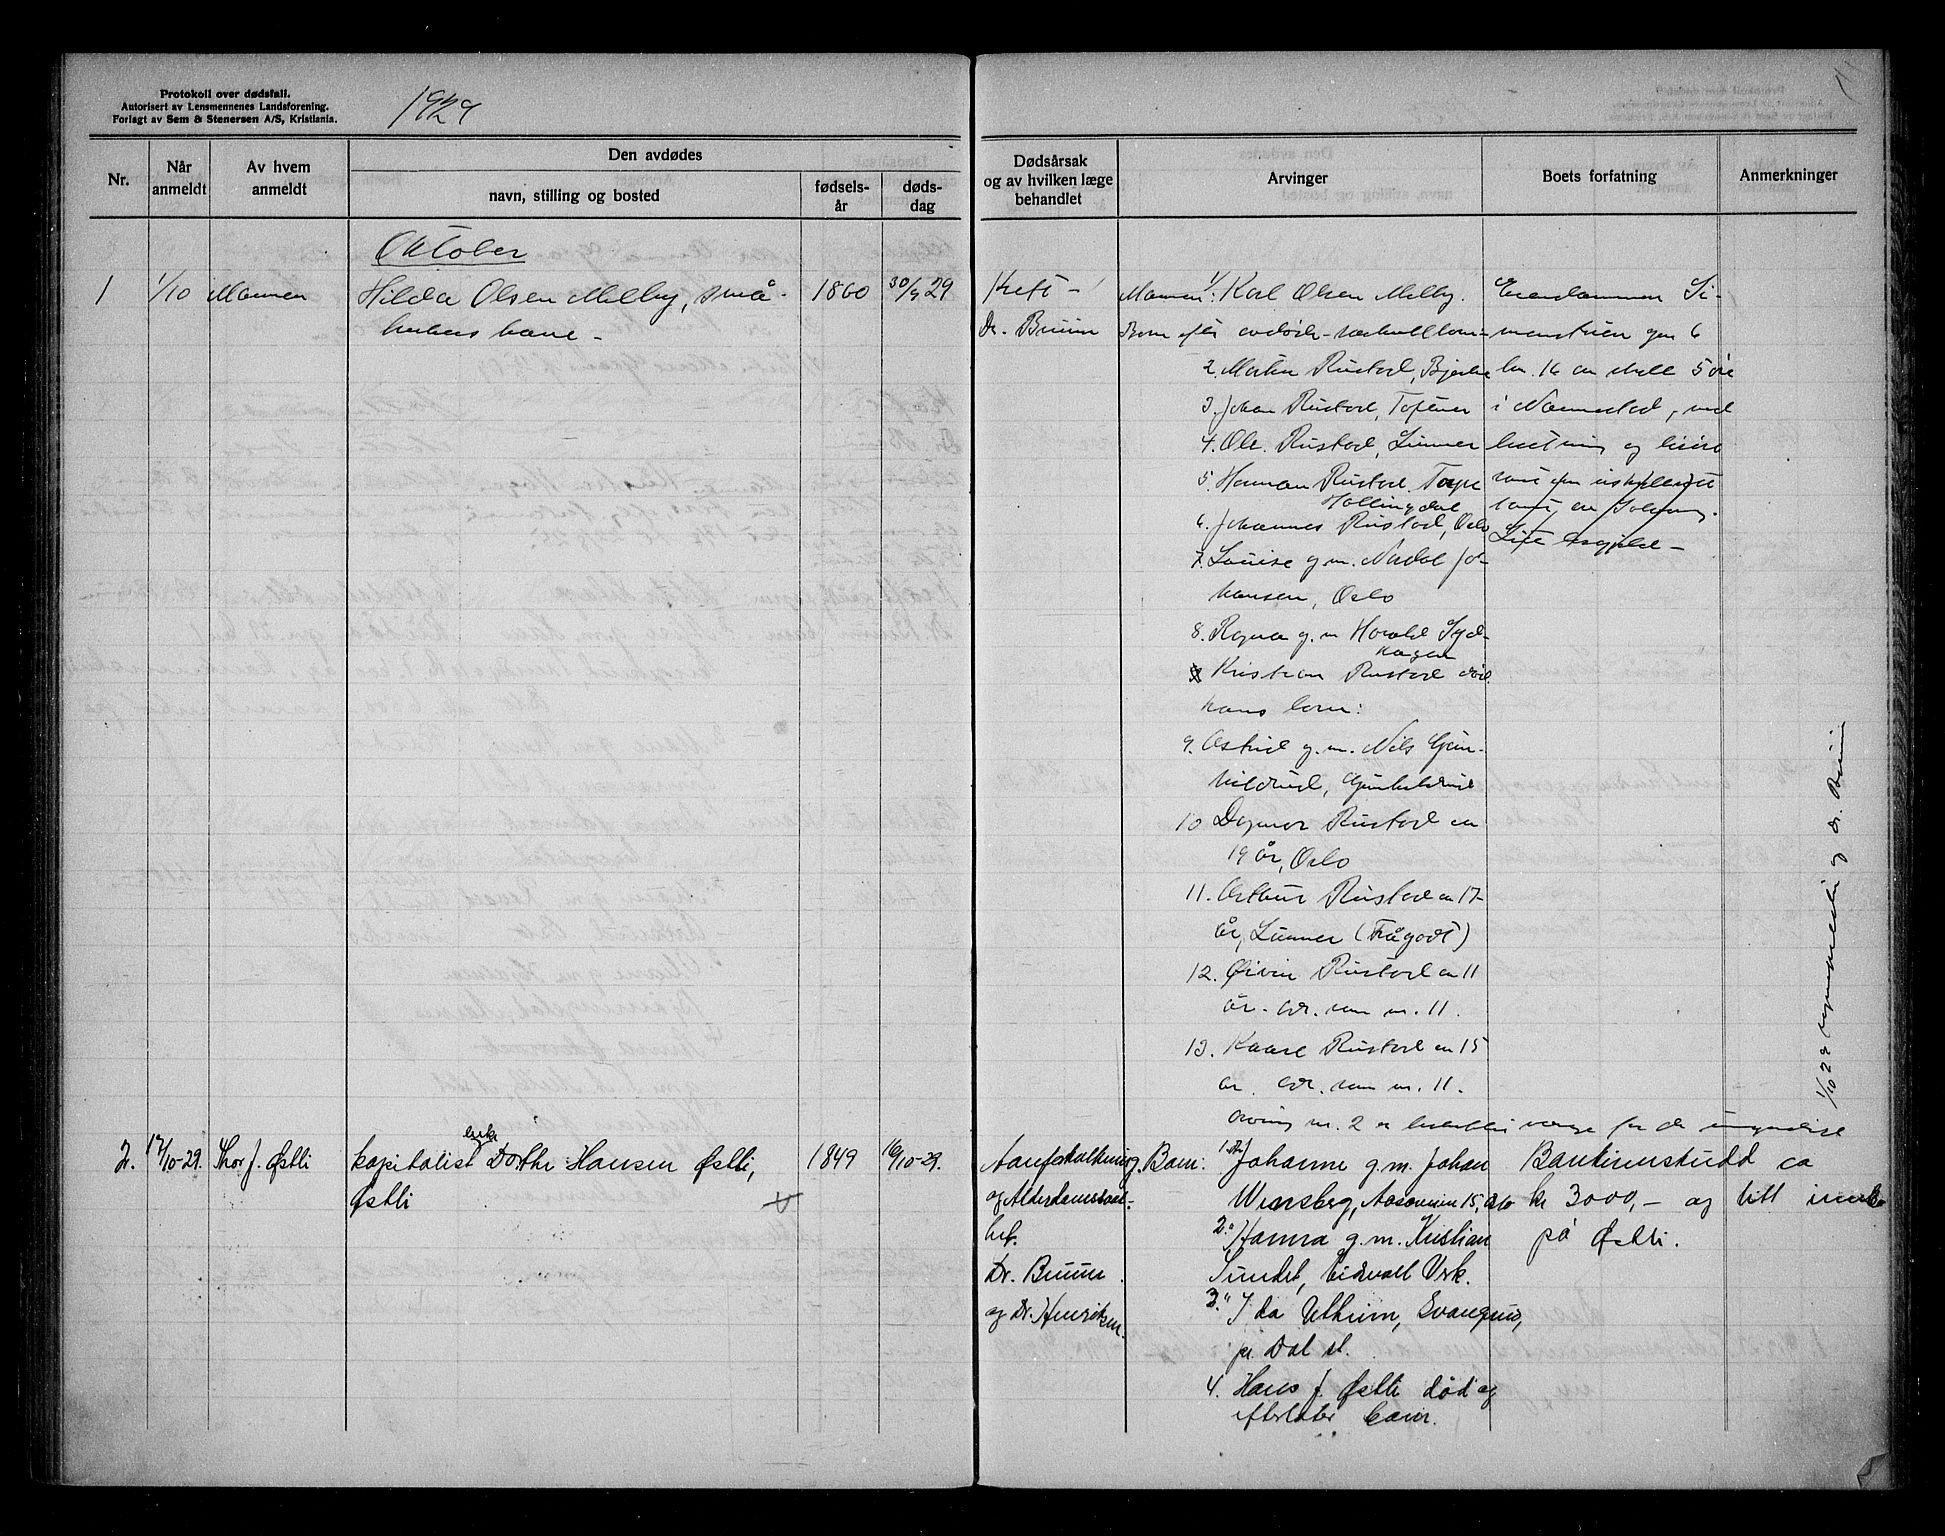 Protokoll over dødsfall.
Autorisert av Lensmennenes Landsforening.
Forlagt av Sem & Stenersen A/S, Kristiania.
1929
Nr.
Når anmeldt
Av hvem anmeldt
Den avdødes
navn, stilling og bosted
fødsels-år
døds-dag
Dødsårsak og av hvilken læge behandlet
Arvinger
Boets forfatning
Anmerkninger
Oktober
1
1/10
Mannen
Hilda Olsen Melby, små-
brukers kone -
1860
30/9 29
Kreft -
Dr. Bruun
Mannen: 1/ Karl Olsen Melby.
Barn efter avdøde
2. Martin Rustad, Bjerke
3. Johan Rustad,
4. Ole Rustad, Lunner
5. Herman Rustad. Torpe
Hallingdal
6. Johannes Rustad, Oslo
7. Louise g. m. Jo-
hansen, Oslo
8. Ragna g. m Harald
hagen
Kristian Rustad død
hans barn:
9. Astrid g. m. Nils Gun-
hildrud, Gunhildrud
10 Dagmar Rustad
19 år, Oslo
11. Arthur Rustad 17
år, Lunner (Frågodt)
12. Øivin Rustad 11
år. adr. som nr. 11.
13. Kaare Rustad 15
år. adr. som nr. 11.
Arving nr. 2 er verge for de umyndige
Eiendommen Si-
gnr 6
bnr. 16 av skyld 5 øre
i Nannestad, med
og
Lite
1/10 29 og dr. Bruun
2.
17/10-29.
Thor J. Østli
kapitalist enke Dorthe Hansen Østli,
Østli
1849
16/10-29.
Aareforkalkning
og Alderdomssvak-
het.
Dr. Bruun
og Dr. Henriksen.
Barn:
1. Johanne g. m. Johan
Winsberg, Aasveien 15, Oslo
2. Hanna g. m. Kristian
Sundet, Eidsvoll Verk.
3. Ida Utheim,
pr. Dal st.
4. Hans J. Østli død og
efterlater barn.
Bankinnskudd ca
kr 3000,- og litt innbo
på Østli.